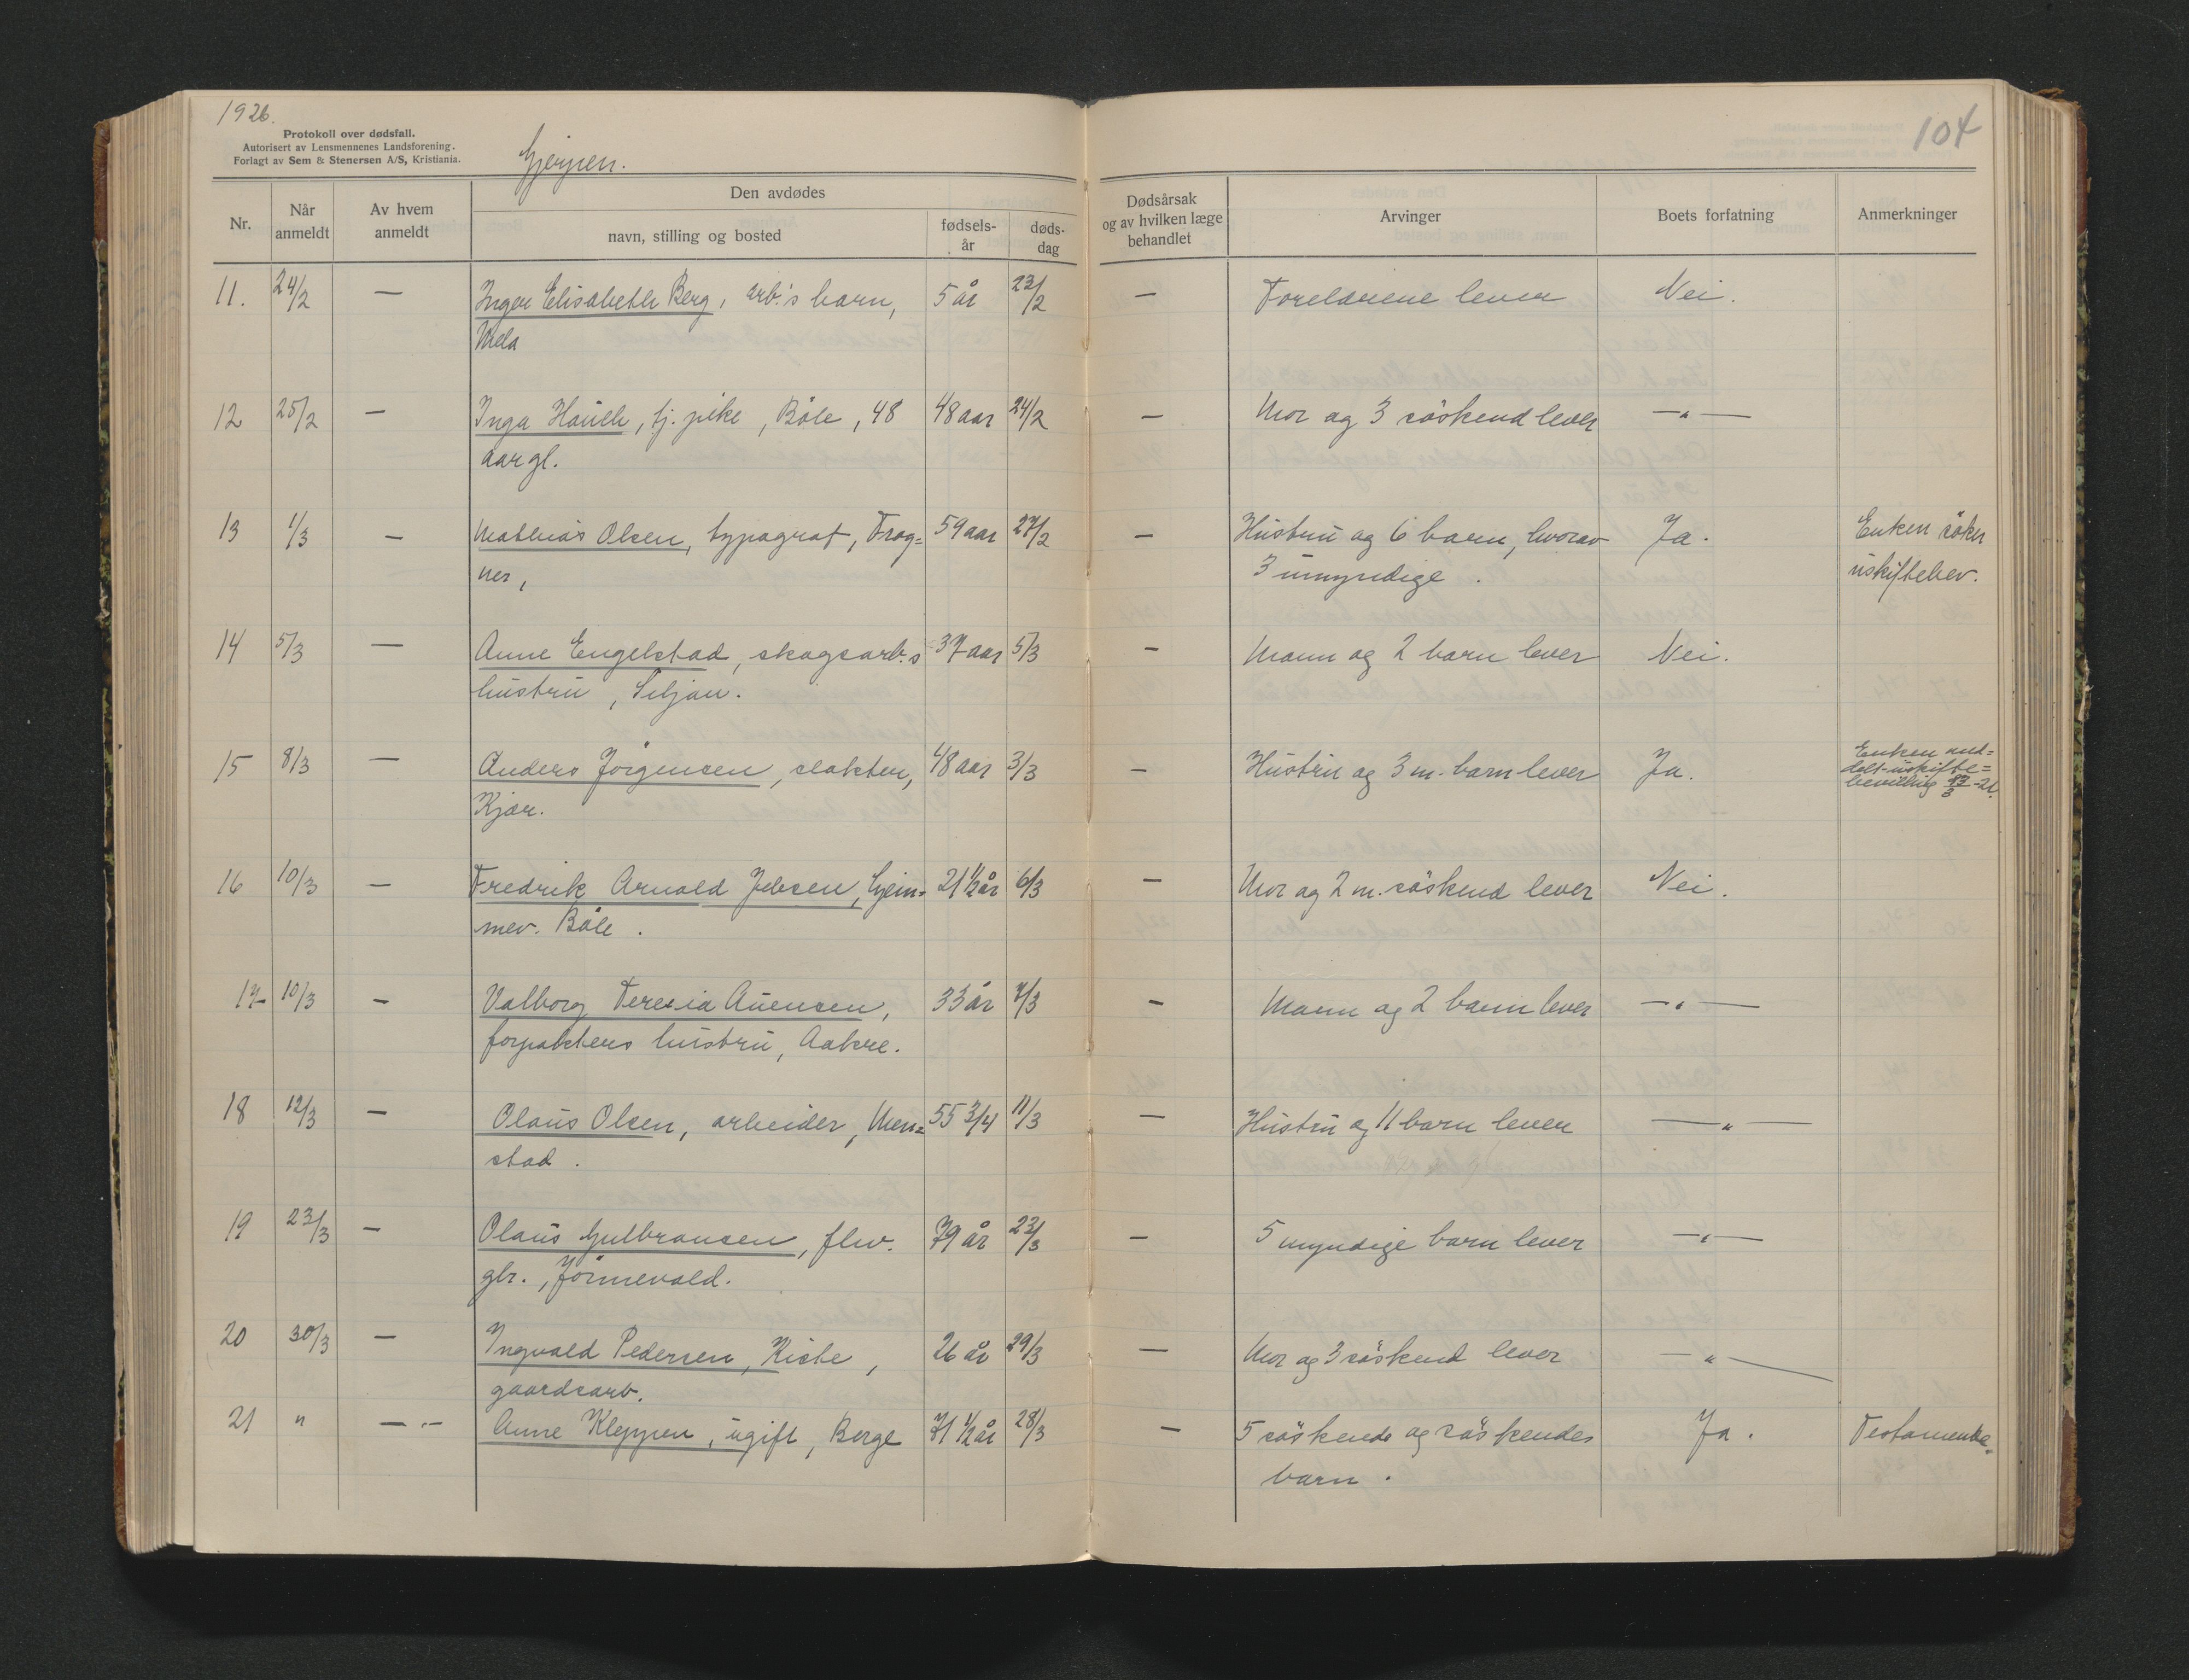 1926.
Protokoll over dødsfall.
Autorisert av Lensmennenes Landsforening.
Forlagt av Sem & Stenersen A/S, Kristiania.
Gjerpen.
104
Nr.
Når anmeldt
Av hvem anmeldt
Den avdødes
navn, stilling og bosted
fødsels-år
døds-dag
Dødsårsak og av hvilken læge behandlet
Arvinger
Boets forfatning
Anmerkninger
11. 24/2 — Inger Elisabeth Berg, arb.'s barn, 5 år 23/2 — Foreldrene lever Nei.
Mela
12 25/2 — Inga Hauch, tj. pike, Bøle, 48 48 aar 24/2 — Mor og 3 søskend lever —„—
aar gl.
13 1/3 — Mathias Olsen, typograf, Frog= 59 aar 27/2 — Hustru og 6 barn, hvorav Ja. Enken søker
ner, 3 umyndige. uskiftebev.
14 5/3 — Anne Engelstad, skogsarb.s 37 aar 5/3 — Mann og 2 barn lever Nei.
hustru, Siljan.
15 8/3 — Anders Jörgensen, slakter, 48 aar 3/3 — Hustru og 3 m. barn lever Ja. Enken med=
delt uskifte=
Kjær. bevilling 13/3-26.
16 10/3 — Fredrik Arnold Jebsen, Gjem= 21 1/2 år 6/3 — Mor og 2 m. søskend lever Nei.
mev. Bøle.
17 10/3 — Valborg Teresia Auensen, 33 år 7/3 — Mann og 2 barn lever —„—
forpakters hustru, Aakre.
18 12/3 — Olaus Olsen, arbeider, Men= 55 3/4 11/3 — Hustru og 11 barn lever —„—
stad.
19 23/3 — Olaus Gulbransen, flw. 79 år 23/3 — 5 myndige barn lever —„—
gbr., Jönnevald.
20 30/3 — Ingvald Pedersen, Kise, 26 år 29/3 — Mor og 3 søskend lever —„—
gaardsarb.
21 " —„— Anne Kleppen, ugift, Berge 71 1/2 år 28/3 — 5 søskende og søskendes Ja. Testamente.
barn.